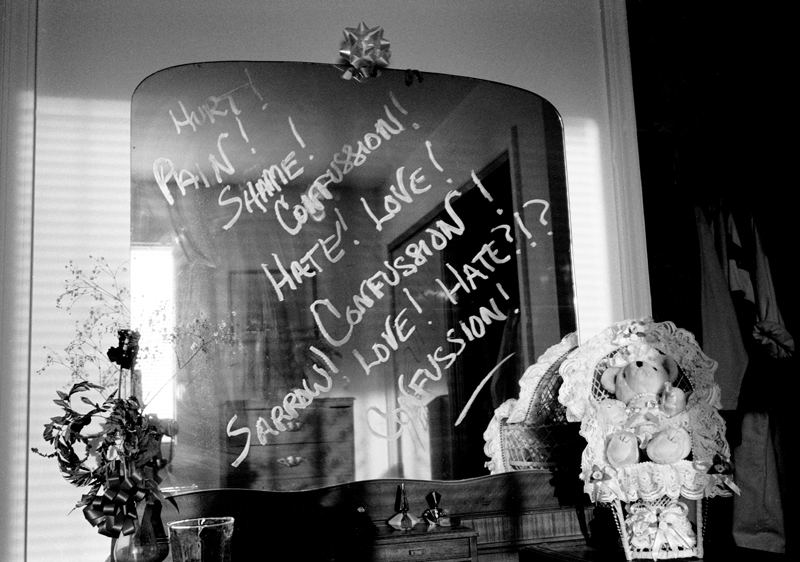 HURT!
PAIN!
SHAME!
CONFUSSION!
HATE! LOVE!
CONFUSSION!
SARROW! LOVE! HATE?!?
CONFUSSION!